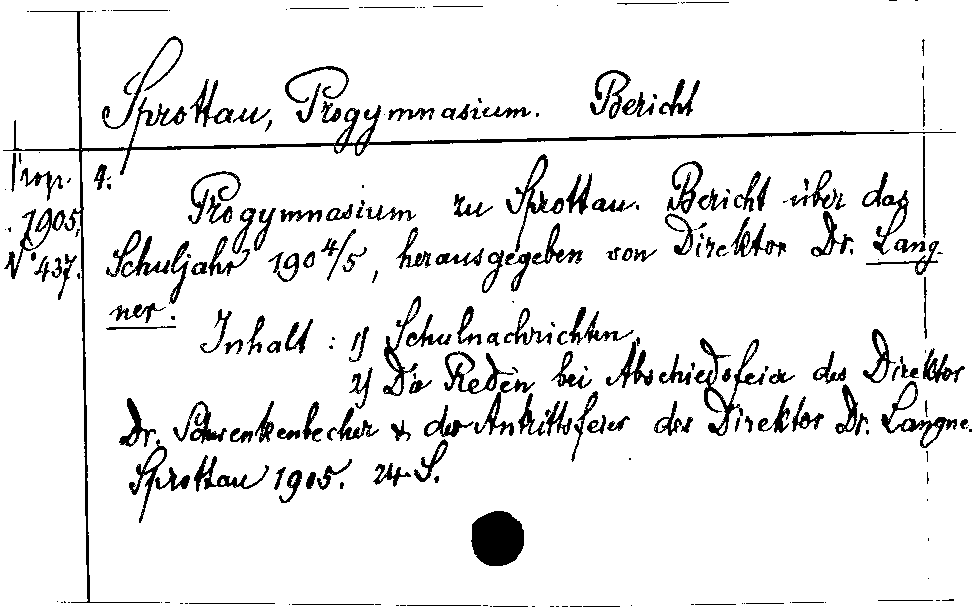 Sprottau, Progymnasium. Bericht
Prop.
1905,
N° 437.
4.
Progymnasium zu Sprottau. Bericht über das
Schuljahr 190 4/5, herausgegeben von Direktor Dr. Lang
ner.
Inhalt: 1) Schulnachrichten,
2) Die Reden bei Abschiedsfeier des Direktor
Dr. & der Antrittsfeier des Direktor Dr. Langne.
Sprottau 1905. 24 S.